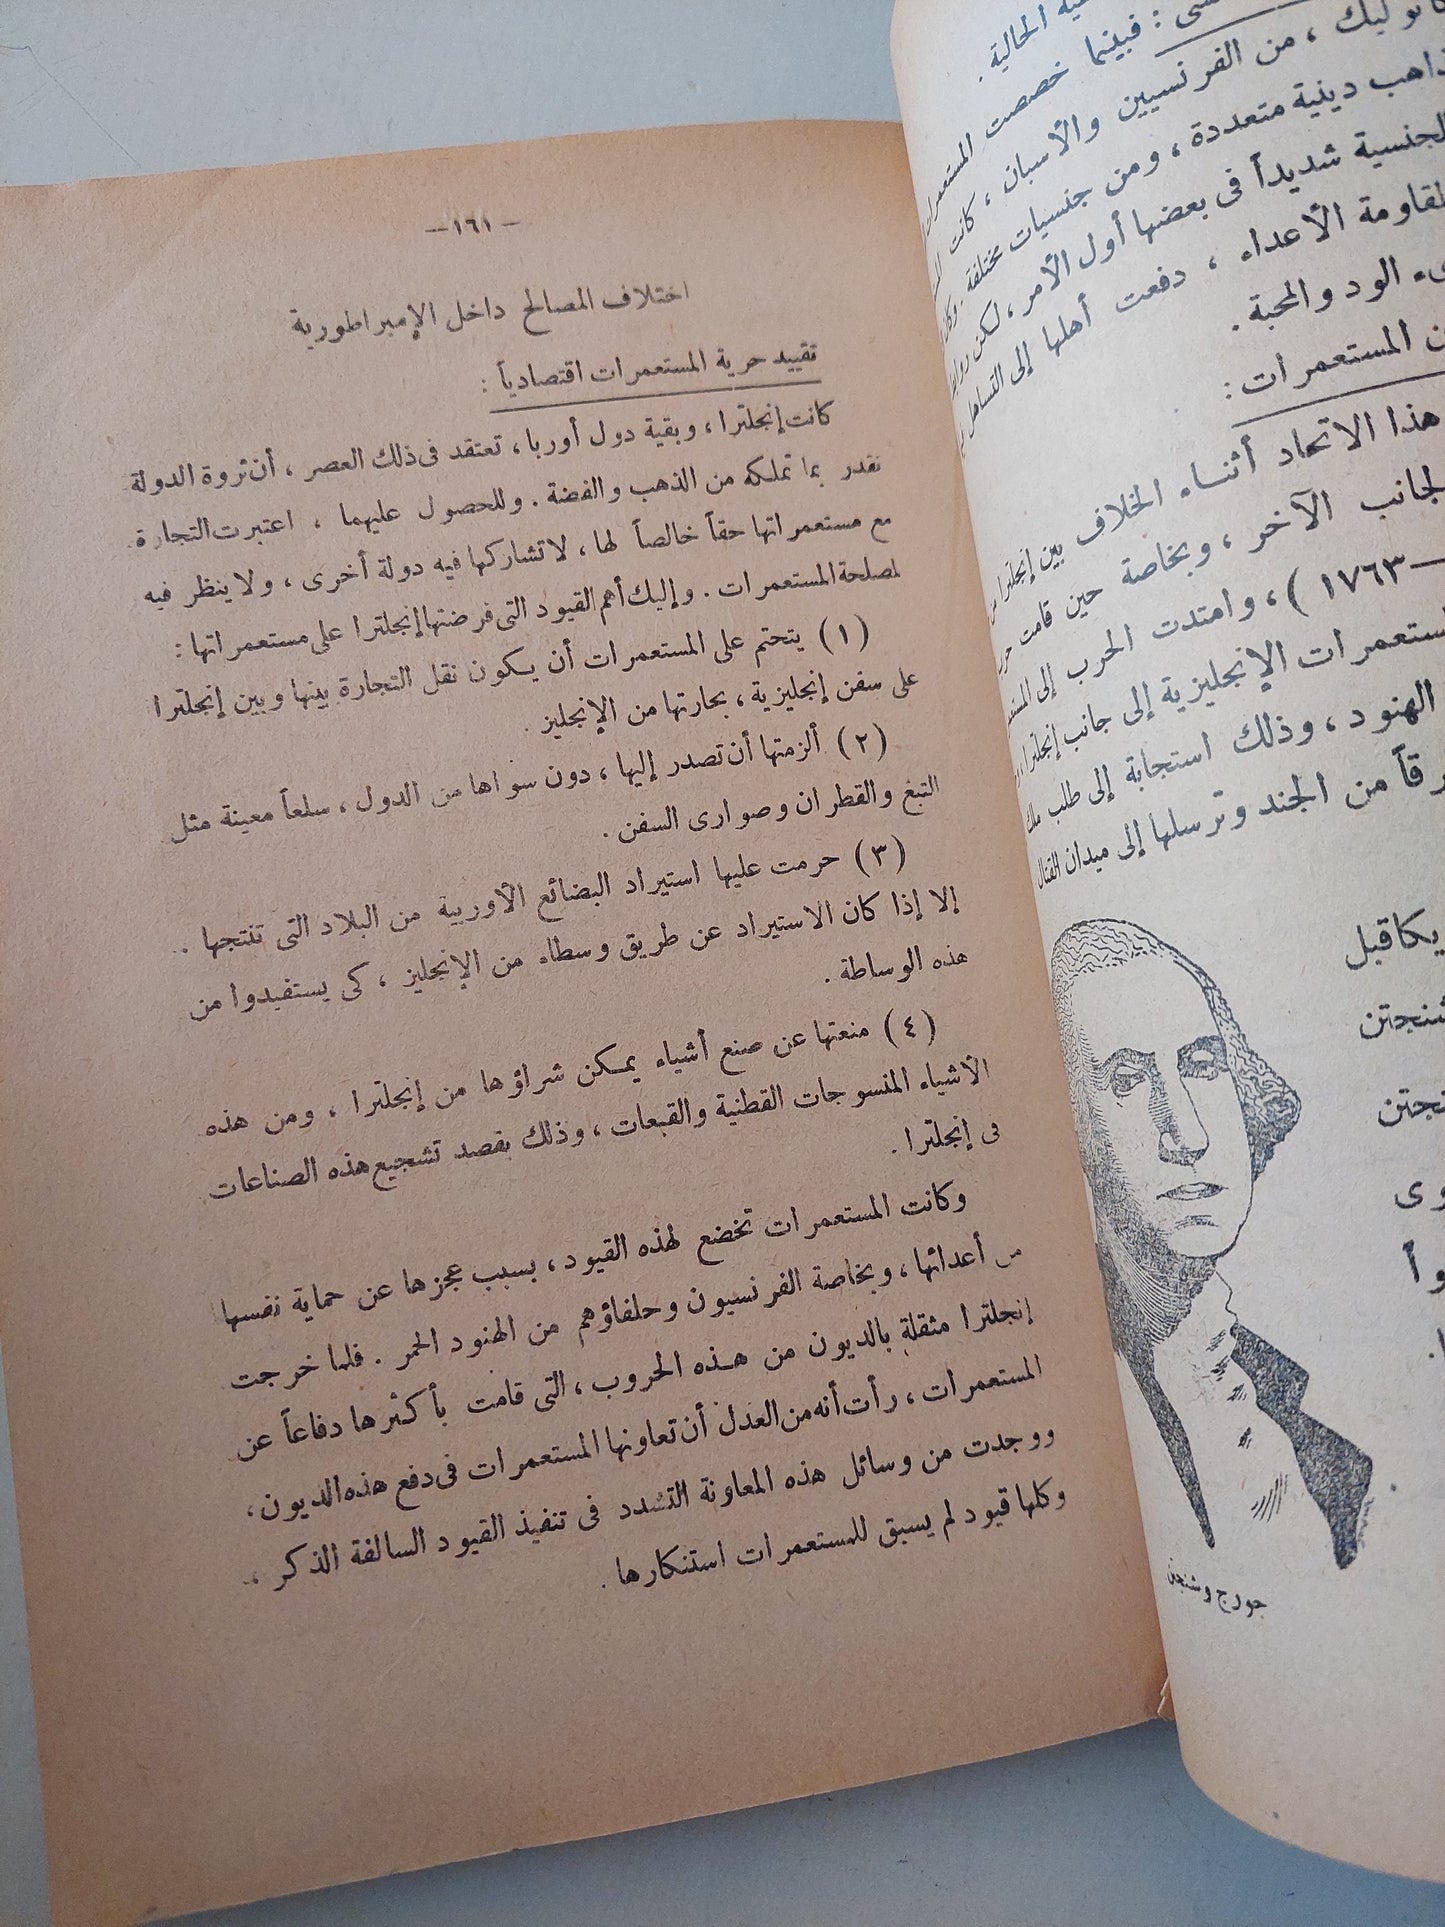 كانوليك ، من الفرنسيين والأسبان ، كانت
فبينما خصصت المستعمرات
الحالية .
ذاهب دينية متعددة ، ومن جنسيات مختلفة . وكا
لجنسية شديداً فى بعضها أول الأمر ، لكن روابط
لمقاومة الأعداء ، دفعت أهلها إلى التساهل
ىء الود والمحبة .
ن المستعمرات :
هذا الاتحاد أثناء الخلاف بين إنجلترا من
لجانب الآخر ، وبخاصة حين قامت حر
— ١٧٦٣ ) ، وامتدت الحرب إلى المستعم
ستعمرات الإنجليزية إلى جانب إنجلترا ،
الهنود ، وذلك استجابة إلى طلب ملك
رقاً من الجند وترسلها إلى ميدان القتال
يكا قبل
شنجتن
نجتن
وى
وأ
ا .
جورج وشنجتن
— ١٦١ —
اختلاف المصالح داخل الإمبراطورية
تقييد حرية المستعمرات اقتصادياً :
كانت إنجلترا ، وبقية دول أوربا ، تعتقد فى ذلك العصر ، أن ثروة الدولة
تقدر بما تملكه من الذهب والفضة . وللحصول عليهما ، اعتبرت التجارة
مع مستعمراتها حقاً خالصاً لها ، لا تشاركها فيه دولة أخرى ، ولا ينظر فيه
لمصلحة المستعمرات . وإليك أهم القيود التى فرضتها إنجلترا على مستعمراتها :
( ١ ) يتحتم على المستعمرات أن يكون نقل التجارة بينها وبين إنجلترا
على سفن إنجليزية ، بحارتها من الإنجليز .
( ٢ ) ألزمتها أن تصدر إليها ، دون سواها من الدول ، سلعاً معينة مثل
التبغ والقطران وصوارى السفن .
( ٣ ) حرمت عليها استيراد البضائع الأوربية من البلاد التى تنتجها .
إلا إذا كان الاستيراد عن طريق وسطاء من الإنجليز ، كى يستفيدوا من
هذه الوساطة .
( ٤ ) منعتها عن صنع أشياء يمكن شراؤها من إنجلترا ، ومن هذه
الأشياء المنسوجات القطنية والقبعات ، وذلك بقصد تشجيع هذه الصناعات
فى إنجلترا .
وكانت المستعمرات تخضع لهذه القيود ، بسبب عجزها عن حماية نفسها
من أعدائها ، وبخاصة الفرنسيون وحلفاؤهم من الهنود الحمر . فلما خرجت
إنجلترا مثقلة بالديون من هذه الحروب ، التى قامت بأكثرها دفاعاً عن
المستعمرات ، رأت أنه من العدل أن تعاونها المستعمرات فى دفع هذه الديون ،
ووجدت من وسائل هذه المعاونة التشدد فى تنفيذ القيود السالفة الذكر ،
وكلها قيود لم يسبق للمستعمرات استنكارها .